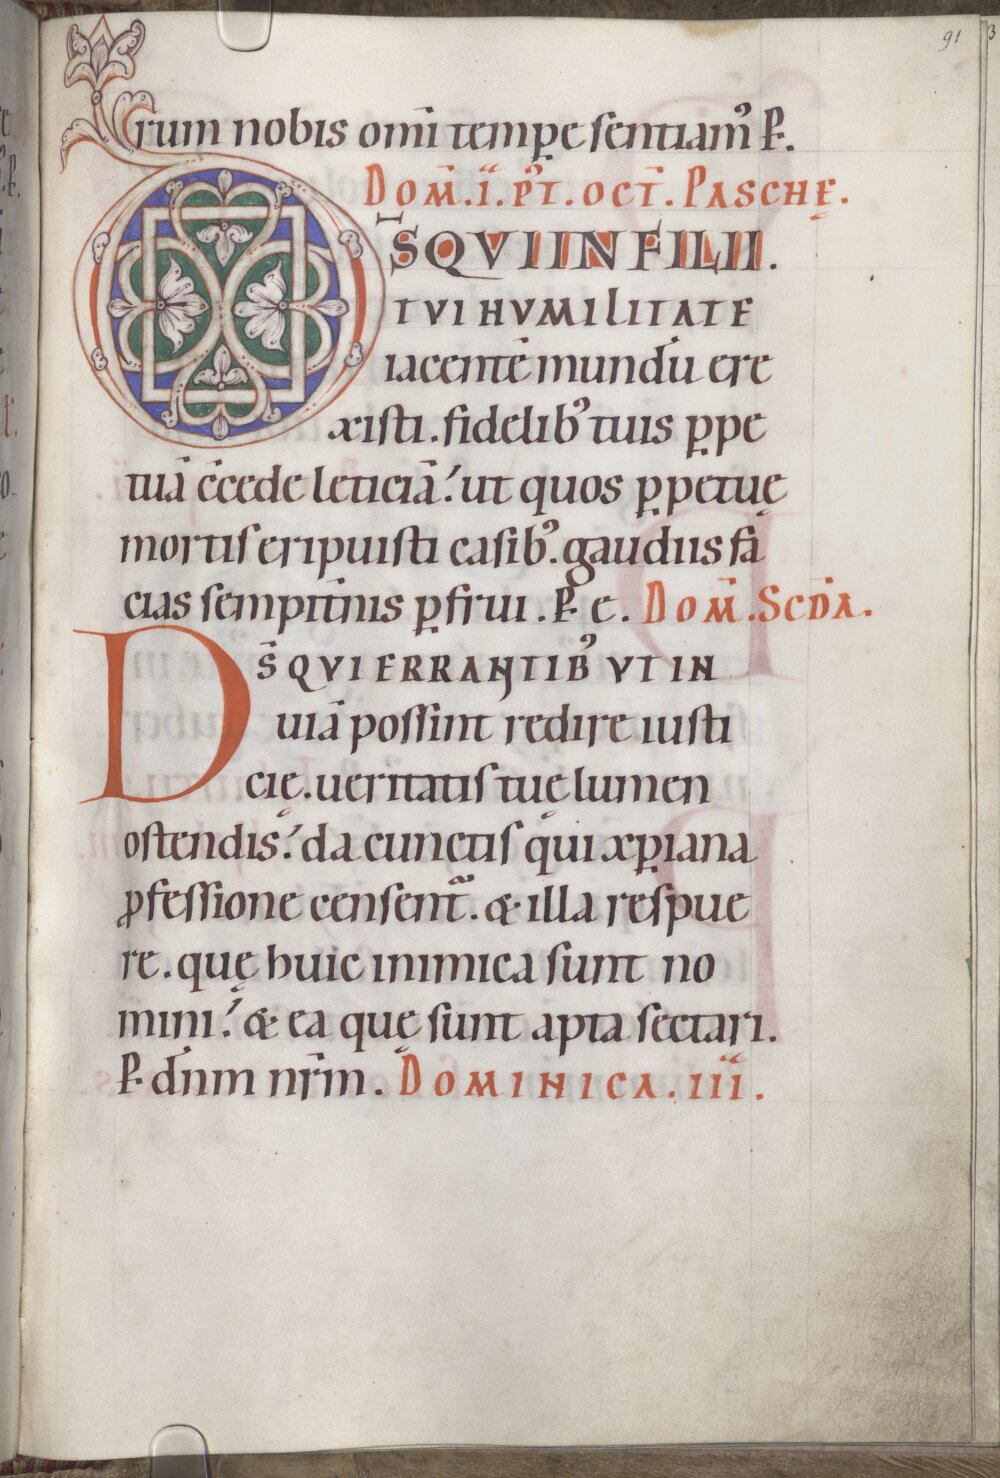 91
3
rum nobis om̄i tempe sentiamꝰ P.
Dom̄. i. pꝰt. oct̄. Paschę.
DS̄ QVI IN FILII.
TVI HVMILITATE
iacentē mundū ere
xisti. fidelibꝰ tuis ꝑpe
tuā c̄cede leticiā! ut quos ꝑpetuę
mortis eripuisti casibꝰ. gaudiis fa
cias sempit̄nis ꝑfrui. P. e. Dom̄. Scd̄a.
DS̄ QVI ERRANTIBꝰ VT IN
uiā possint redire iusti
cię. ueritatis tuę lumen
ostendis! da cunctis qui xꝑiana
ꝓfessione censent᷑. & illa respue
re. quę huic inimica sunt no
mini! & ea quę sunt apta sectari.
P. dn̄m nr̄m. Dominica. iii.